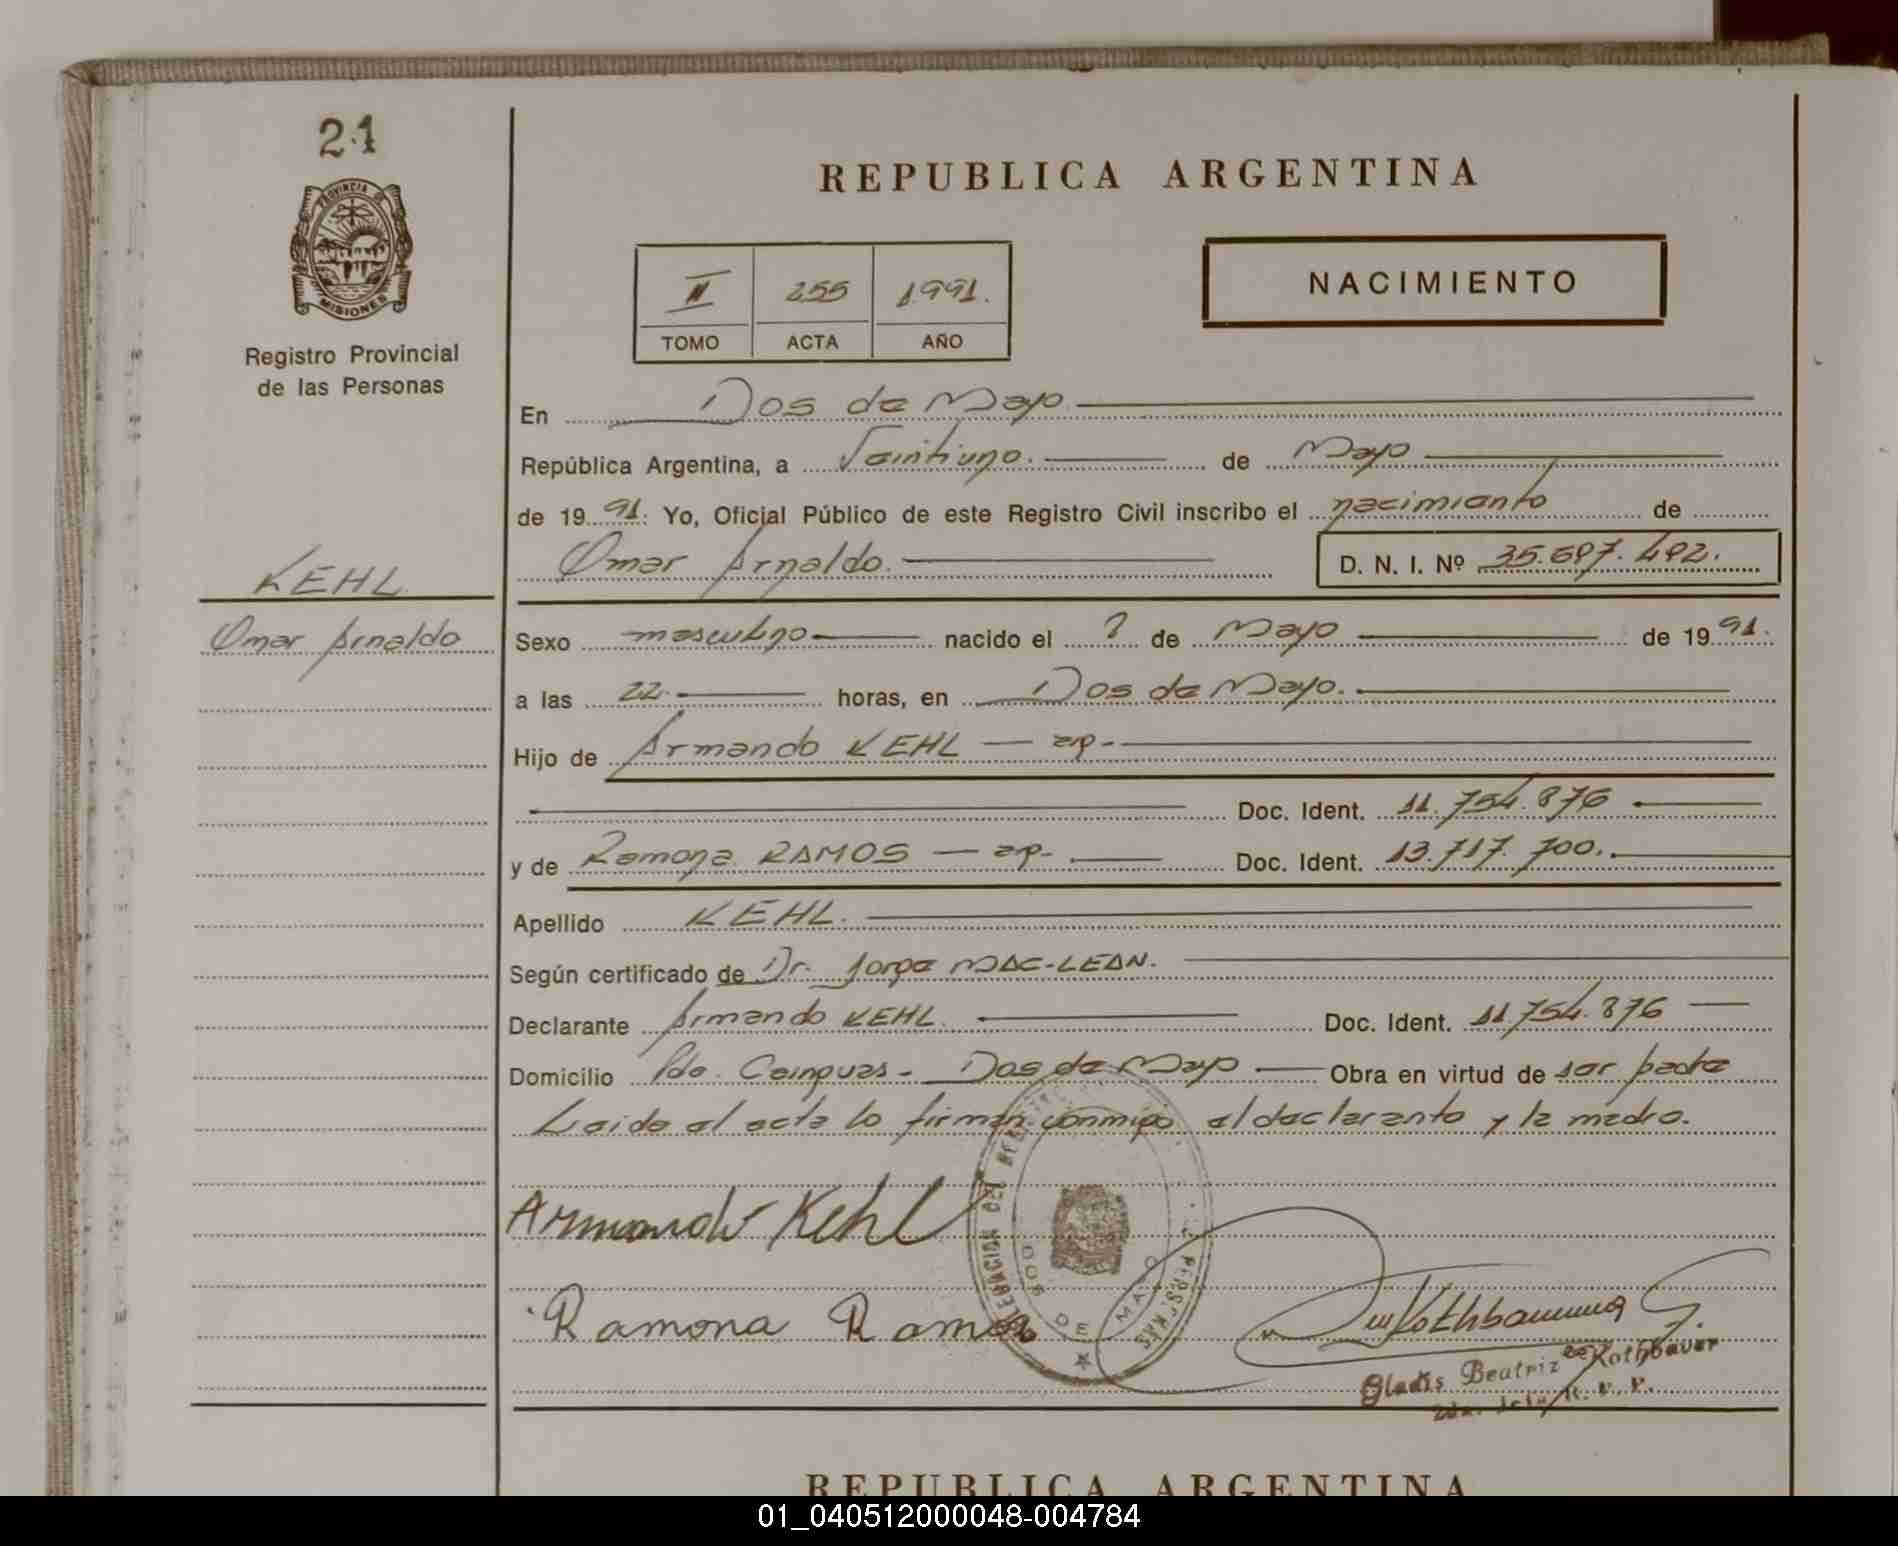 21
PROVINCIA DE
MISIONES
Registro Provincial
de las Personas
REPUBLICA ARGENTINA
NACIMIENTO
II 255 1991.
TOMO ACTA AÑO
En Dos de Mayo
República Argentina, a Veintiuno. de Mayo
de 19 91. Yo, Oficial Público de este Registro Civil inscribo el nacimiento de
Omar Arnaldo. D. N. I. Nº 35.697.492.
KEHL
Omar Arnaldo
Sexo masculino nacido el de Mayo de 19 91.
a las 22. horas, en Dos de Mayo.
Hijo de Armando KEHL — ap.
Doc. Ident. 11.754.876
y de Ramona RAMOS — ap. Doc. Ident. 13.717.700.
Apellido KEHL.
Según certificado de Dr. Jorge MAC-LEAN.
Declarante Armando KEHL. Doc. Ident. 11.754.876
Domicilio Pdo. Cainguas - Dos de Mayo Obra en virtud de ser padre
Leida el acta lo firman conmigo el declarante y la madre.
Armando Kehl
Ramona Ramos
DELEGACION DEL REGISTRO PERSONAS
DOS DE MAYO
Gladis Beatriz de Rothbauer
REPUBLICA ARGENTINA
01_040512000048-004784